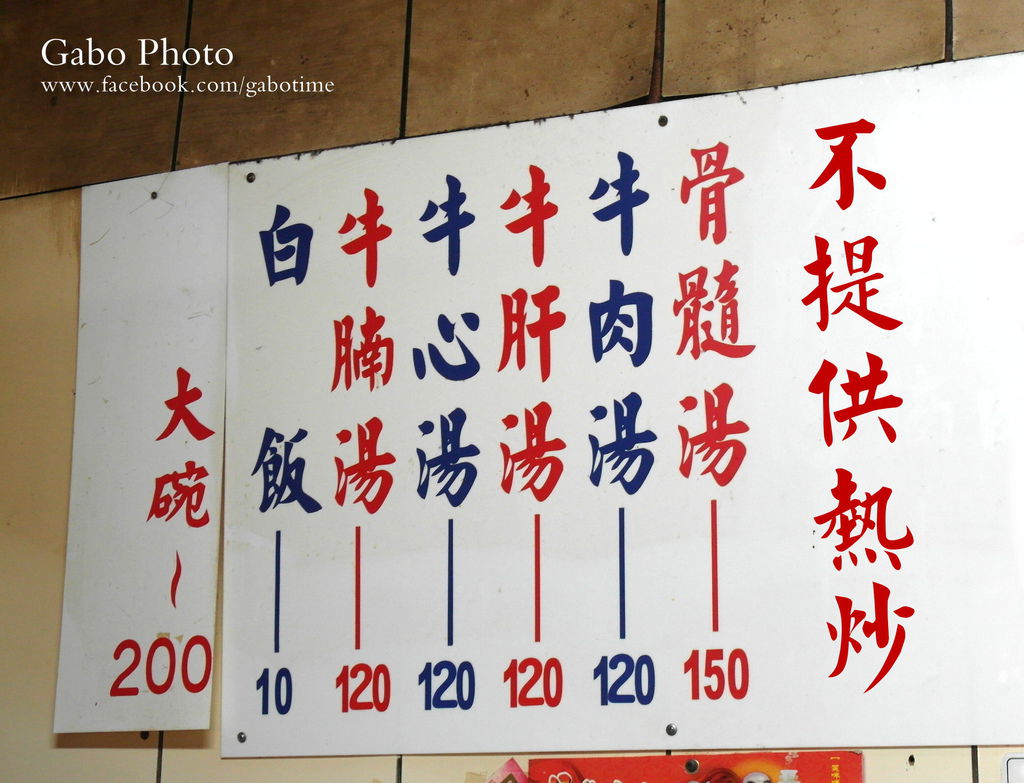 Gabo Photo
www.facebook.com/gabotime
不提供熱炒
骨髓湯 150
牛肉湯 120
牛肝湯 120
牛心湯 120
牛腩湯 120
白飯 10
大碗~200